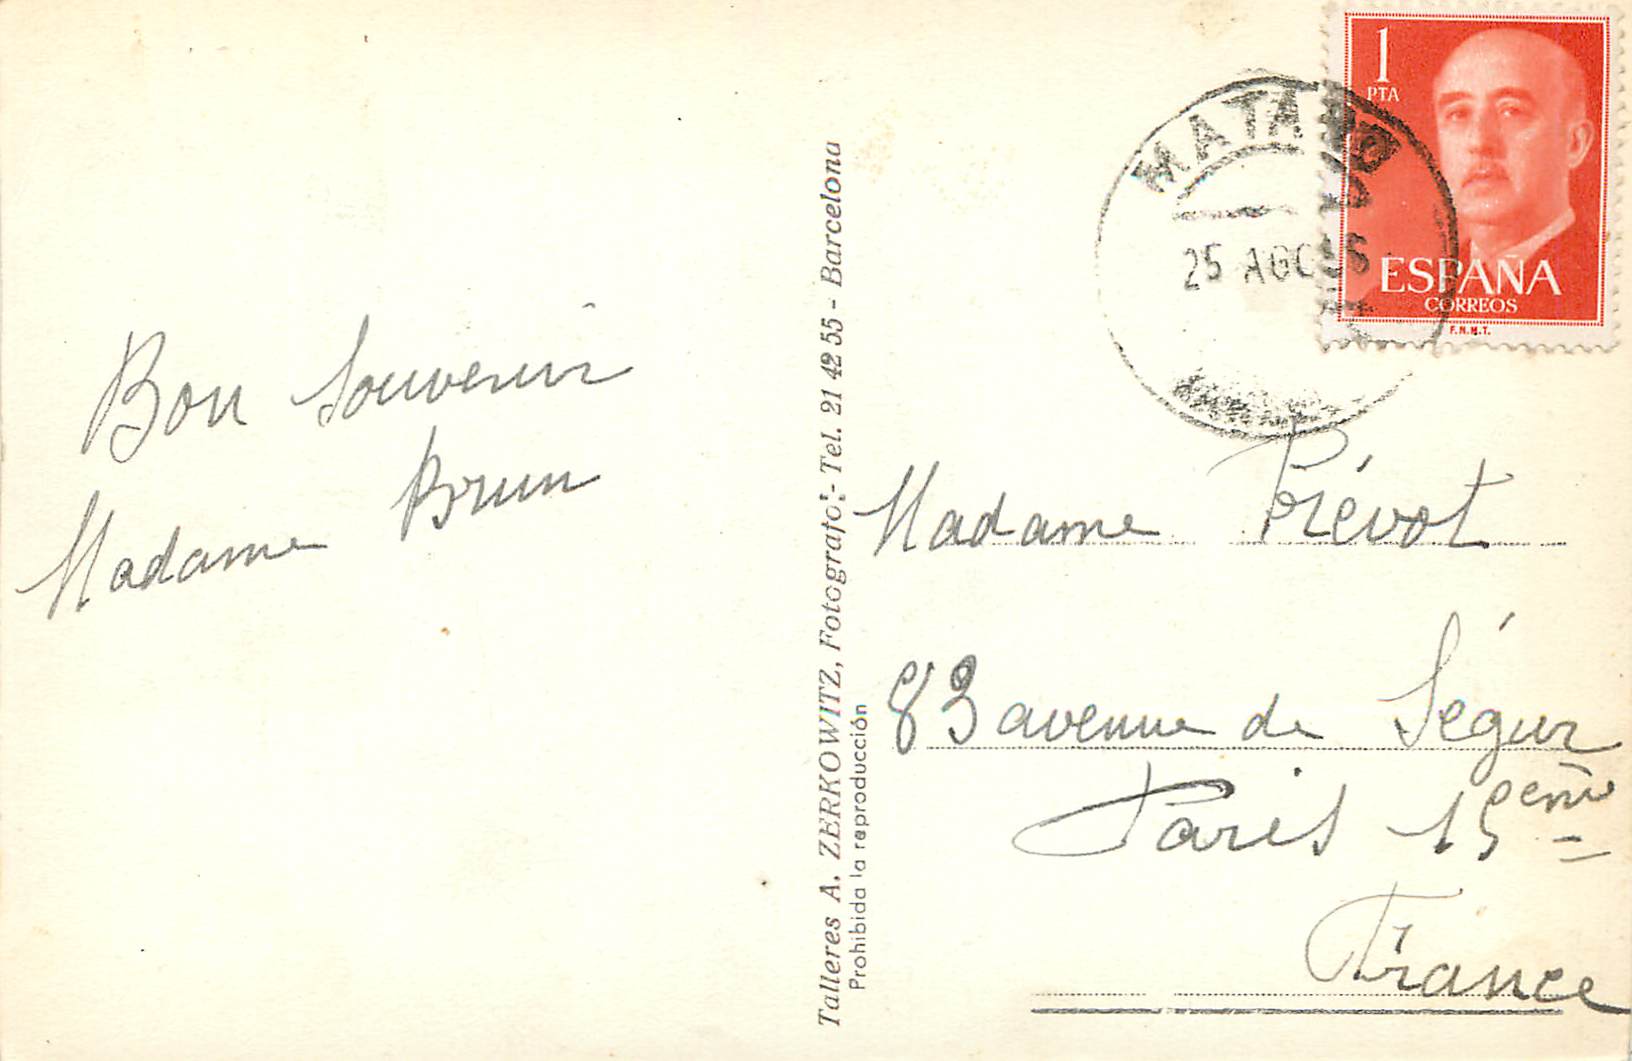 Bon Souvenir
Madame Brun
Talleres A. ZERKOWITZ, Fotógrafo.- Tel. 21 42 55 - Barcelona
Prohibida la reproducción
1
PTA
ESPAÑA
CORREOS
F.N.M.T.
MATARO
25 AGO
Madame Prévot
83 avenue de Ségur
Paris 15eme
France